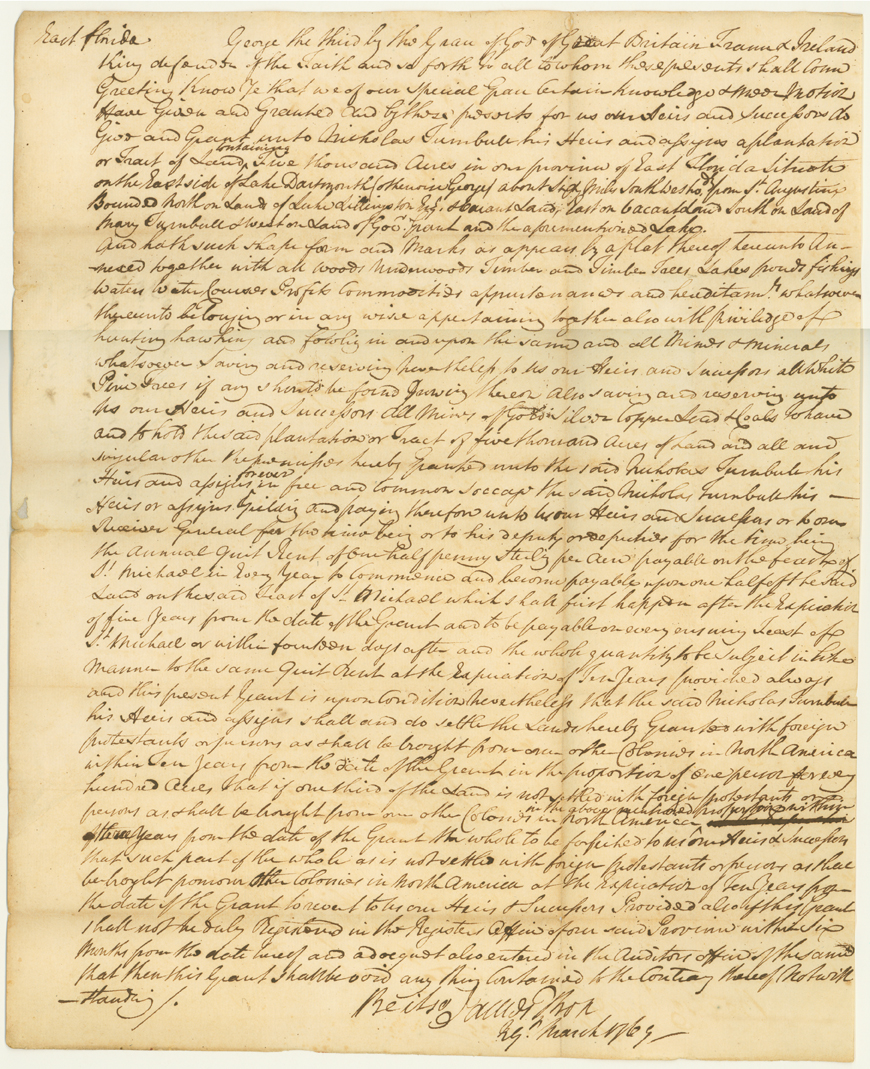 East florida George the third by the Grace of God of Great Britain France & Ireland
King defender of the Faith and so forth to all to whom these presents shall Come
Greeting Know Ye that we of our special Grace Certain Knowledge & meer Motion
Have Given and Granted And by these presents for us our Heirs and Successors do
Give and Grant unto Nicholas Turnbull his Heirs and assigns a plantation
or Tract of Land containing Five thousand Acres in our province of East Florida Situate
on the East side of Lake Dartmouth (otherwise George) about Sixty Miles South West from St. Augustine
Bounded North on Lands of Luke Lillingston Esqr. & vacant Land, East on Vacant Land South on Land of
Mary Turnbull & West on Land of Govr. Grant and the aforementioned Lake.
And hath such shape form and Marks as appears by a plat thereof hereunto An-
nexed together with all Woods Underwoods Timber and Timber Trees Lakes ponds fishings
Waters Water Courses Profits Commodities appurtenances and hereditamts. whatsoever
thereunto belonging or in any wise appertaining together also with priviledge of
hunting hawking and fowling in and upon the same and all Mines & minerals
whatsoever Saving and reserving nevertheless to us our Heirs and Successors all White
Pine Trees if any should be found growing thereon Also saving and reserving unto
us our Heirs and Successors All Mines of Gold Silver Copper Lead & Coals To have
and to hold the said plantation or Tract of five thousand Acres of Land and all and
singular other the premisses hereby Granted unto the said Nicholas Turnbull his
Heirs and assigns forever in free and Common Soccage the said Nicholas turnbull his
Heirs or assigns yielding and paying therefore unto us our Heirs and Successors or to our
Receiver General for the time being or to his deputy or deputies for the time being
the Annual Quit Rent of One half penny Sterlig per Acre payable on the feast of
St. Michael in Every Year to Commence and become payable upon one half of the said
Land on the said Feast of St. Michael which shall first happen after the Expiration
of five Years from the date of the Grant and to be payable on every ensuing Feast of
St. Michael or within fourteen days after and the whole quantity to be subject in like
manner to the same Quit Rent at the Expiration of Ten Years provided always
and this present Grant is upon Condition Nevertheless that the said Nicholas Turnbull
his Heirs and assigns shall and do settle the Lands hereby Granted with foreign
protestants or persons as shall be brought from our other Colonies in North America
within Ten Years from the date of the Grant in the proportion of One person for every
hundred Acres That if one third of the Land is not settled with foreign protestants or
persons as shall be brought from our other Colonies in North America in the above mentioned proportion within
three Years from the date of the Grant the whole to be forfeited to us our Heirs & Successors
that such part of the whole as is not settled with foreign protestants or persons as shall
be brought from our Other Colonies in North America at the Expiration of Ten Years from
the date of the Grant to revert to us our Heirs & Successors Provided also if this Grant
shall not be duly Registered in the Registers Office of our said Province within Six
Months from the date hereof and a docquet also entered in the Auditors office of the same
that then this Grant shall be void any thing Contained to the Contrary thereof Notwith
-standing